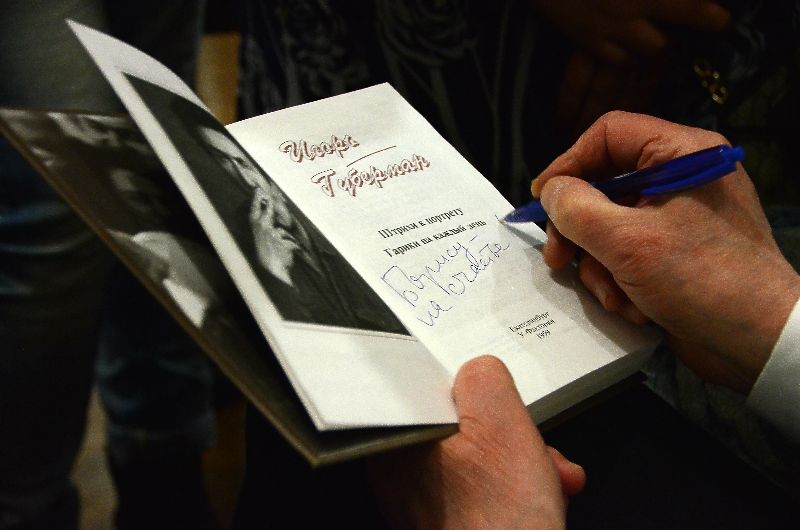 Игорь
Губерман
Штрихи к портрету
Гарики на каждый день
Борису -
на счастье !
Екатеринбург
У-Фактория
1999